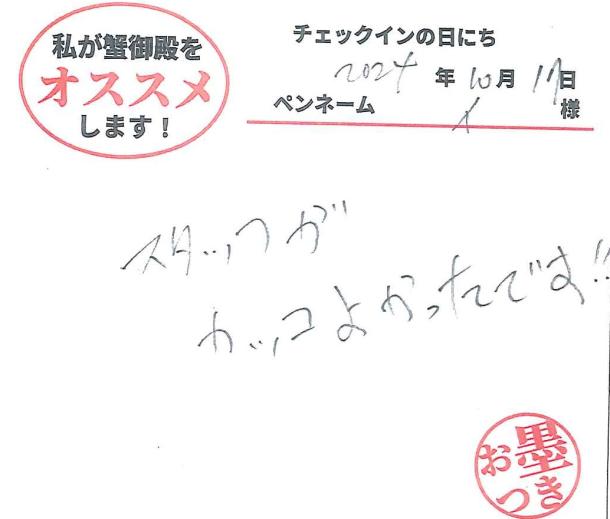 私が蟹御殿を
オススメ
します！
チェックインの日にち
2024 年 10 月 17 日
ペンネーム 様
スタッフが
カッコよかったです!!
お墨
つき